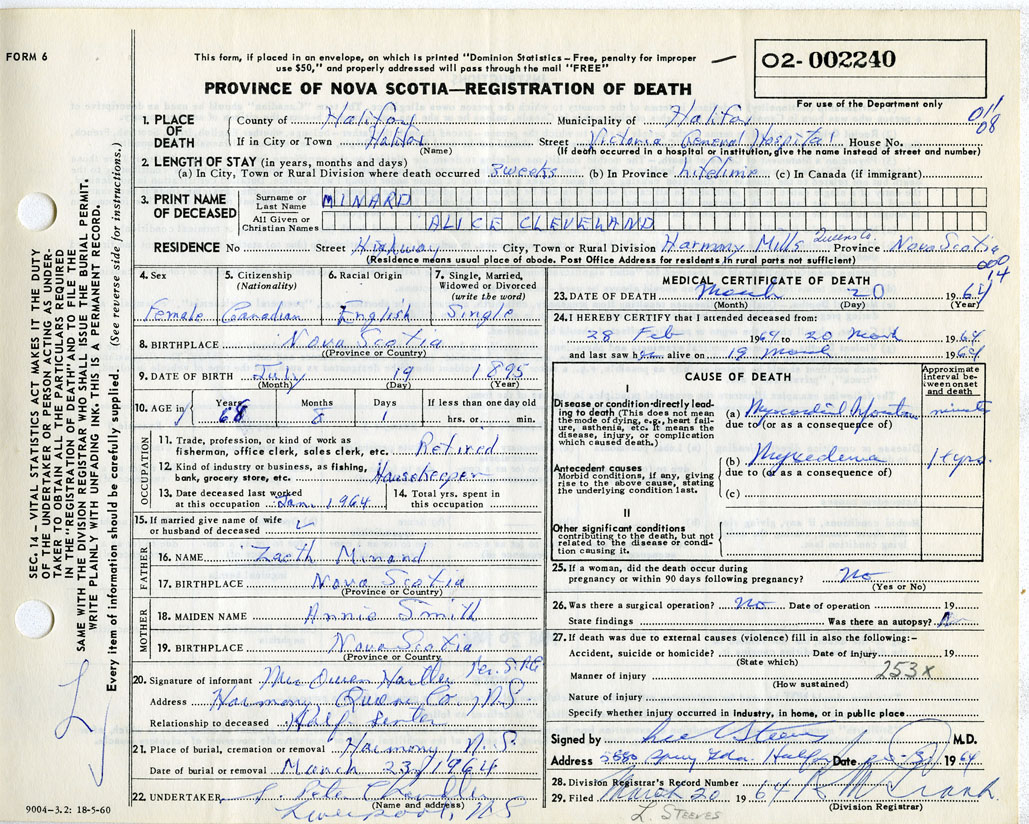 FORM 6
This form, if placed in an envelope, on which is printed "Dominion Statistics – Free, penalty for improper
use $50," and properly addressed will pass through the mail "FREE"
PROVINCE OF NOVA SCOTIA—REGISTRATION OF DEATH
02-002240
For use of the Department only
011
08
1. PLACE OF DEATH
County of Halifax Municipality of Halifax
If in City or Town Halifax Street Victoria General Hospital House No.
(Name) (If death occurred in a hospital or institution, give the name instead of street and number)
2. LENGTH OF STAY (in years, months and days)
(a) In City, Town or Rural Division where death occurred 3 weeks (b) In Province lifetime (c) In Canada (if immigrant)
3. PRINT NAME OF DECEASED
Surname or Last Name MINARD
All Given or Christian Names ALICE CLEVELAND
RESIDENCE No Street Highway City, Town or Rural Division Harmony Mills Queens Co. Province Nova Scotia
(Residence means usual place of abode. Post Office Address for residents in rural parts not sufficient)
000
14
4. Sex Female
5. Citizenship (Nationality) Canadian
6. Racial Origin English
7. Single, Married, Widowed or Divorced (write the word) Single
8. BIRTHPLACE Nova Scotia
(Province or Country)
9. DATE OF BIRTH July 19 1895
(Month) (Day) (Year)
10. AGE in Years 68 Months 8 Days 1 If less than one day old hrs. or min.
OCCUPATION
11. Trade, profession, or kind of work as
fisherman, office clerk, sales clerk, etc. Retired
12. Kind of industry or business, as fishing,
bank, grocery store, etc. Housekeeper
13. Date deceased last worked
at this occupation Jan. 1964
14. Total yrs. spent in
this occupation
15. If married give name of wife
or husband of deceased
FATHER
16. NAME Minard
17. BIRTHPLACE Nova Scotia
(Province or Country)
MOTHER
18. MAIDEN NAME Annie Smith
19. BIRTHPLACE Nova Scotia
(Province or Country
20. Signature of informant Mrs Owen
Address Harmony Queens Co, N.S
Relationship to deceased Half Sister
21. Place of burial, cremation or removal Harmony, N.S.
Date of burial or removal March 23/1964
22. UNDERTAKER
(Name and address)
Liverpool, NS
9004-3.2: 18-5-60
MEDICAL CERTIFICATE OF DEATH
23. DATE OF DEATH March 20 1964
(Month) (Day) (Year)
24. I HEREBY CERTIFY that I attended deceased from:
28 Feb 1964 to 20 March 1964
and last saw her alive on 19 March 1964
CAUSE OF DEATH
Approximate interval between onset and death
I
Disease or condition directly leading
to death (This does not mean
the mode of dying, e.g., heart failure,
asthenia, etc. It means the
disease, injury, or complication
which caused death.)
(a) Myocardial minutes
due to (or as a consequence of)
Antecedent causes
Morbid conditions, if any, giving
rise to the above cause, stating
the underlying condition last.
(b) Myxedema 1+ yrs.
due to (or as a consequence of)
(c)
II
Other significant conditions
contributing to the death, but not
related to the disease or condition
causing it.
25. If a woman, did the death occur during
pregnancy or within 90 days following pregnancy? No
(Yes or No)
26. Was there a surgical operation? No Date of operation 19
State findings Was there an autopsy? No
27. If death was due to external causes (violence) fill in also the following:–
Accident, suicide or homicide? Date of injury 19
(State which)
253x
Manner of injury
(How sustained)
Nature of injury
Specify whether injury occurred in industry, in home, or in public place
Signed by Lee Steeves M.D.
Address Halifax Date 1964
28. Division Registrar's Record Number
29. Filed March 20 1964
(Division Registrar)
L. STEEVES
SEC. 14 – VITAL STATISTICS ACT MAKES IT THE DUTY
OF THE UNDERTAKER OR PERSON ACTING AS UNDER-
TAKER TO OBTAIN ALL THE PARTICULARS REQUIRED
IN THE "REGISTRATION OF DEATH" AND TO FILE THE
SAME WITH THE DIVISION REGISTRAR WHO SHALL ISSUE THE BURIAL PERMIT.
WRITE PLAINLY WITH UNFADING INK. THIS IS A PERMANENT RECORD.
Every item of information should be carefully supplied. (See reverse side for instructions.)